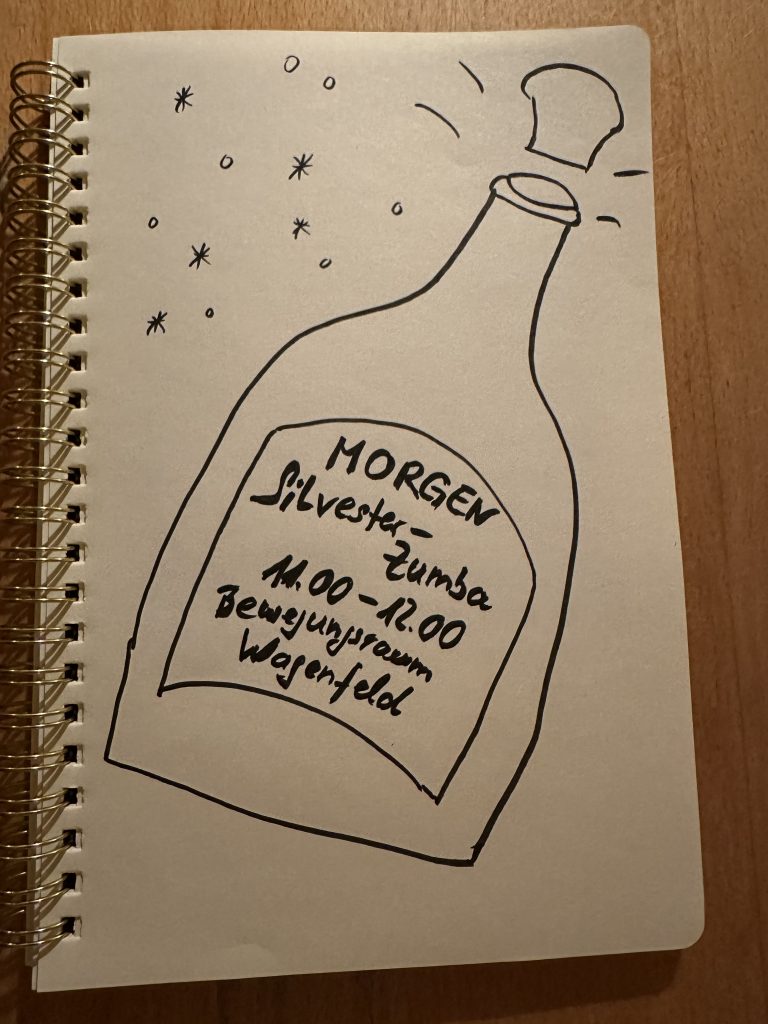 MORGEN
Silvester-
Zumba
11.00-12.00
Bewegungsraum
Wagenfeld